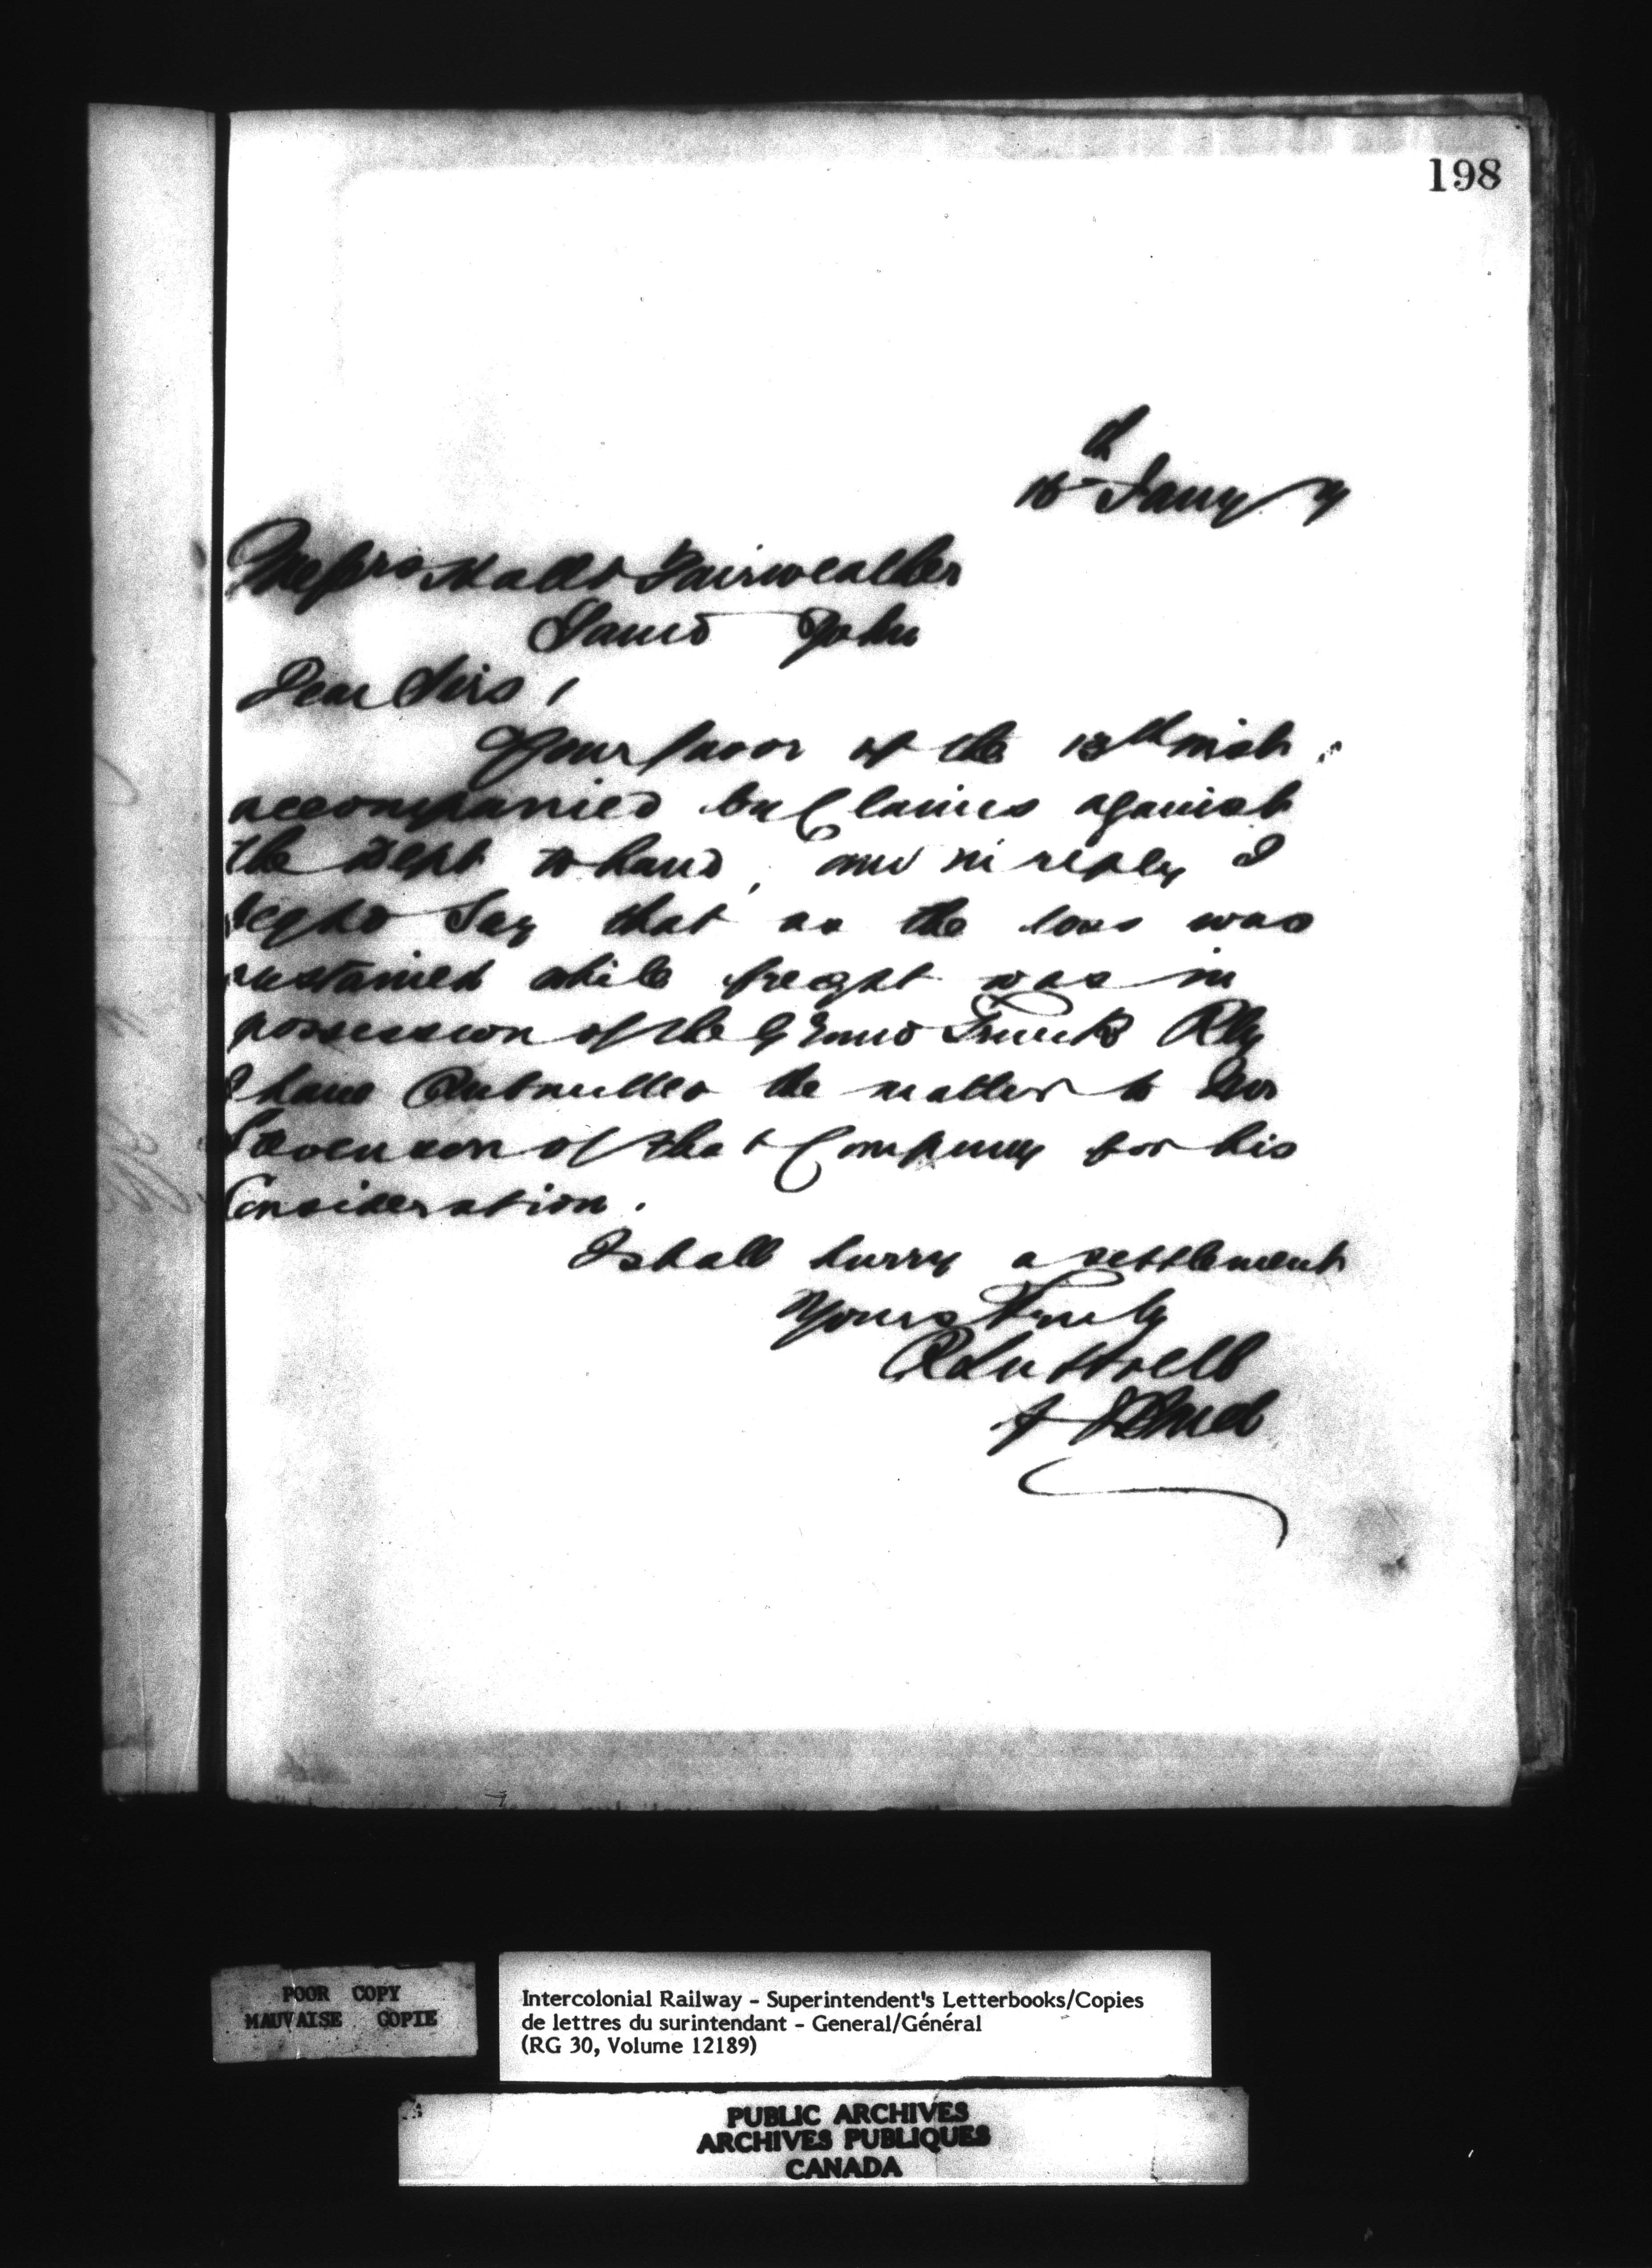 198
16th Jany 7
Messrs Hall & Fairweather
Saint John
Dear Sirs,
Your favor of the 13th inst.
accompanied by Claims against
the Dept to hand, and in reply I
beg to Say that as the loss was
sustained while freght was in
possession of the Grand Trunk Rly
I have Submitted the matter to Mr
Stevenson of that Company for his
Consideration.
I shall hurry a settlement
Yours Truly
R Luttrell
POOR COPY
MAUVAISE COPIE
Intercolonial Railway - Superintendent's Letterbooks/Copies
de lettres du surintendant - General/Général
(RG 30, Volume 12189)
PUBLIC ARCHIVES
ARCHIVES PUBLIQUES
CANADA